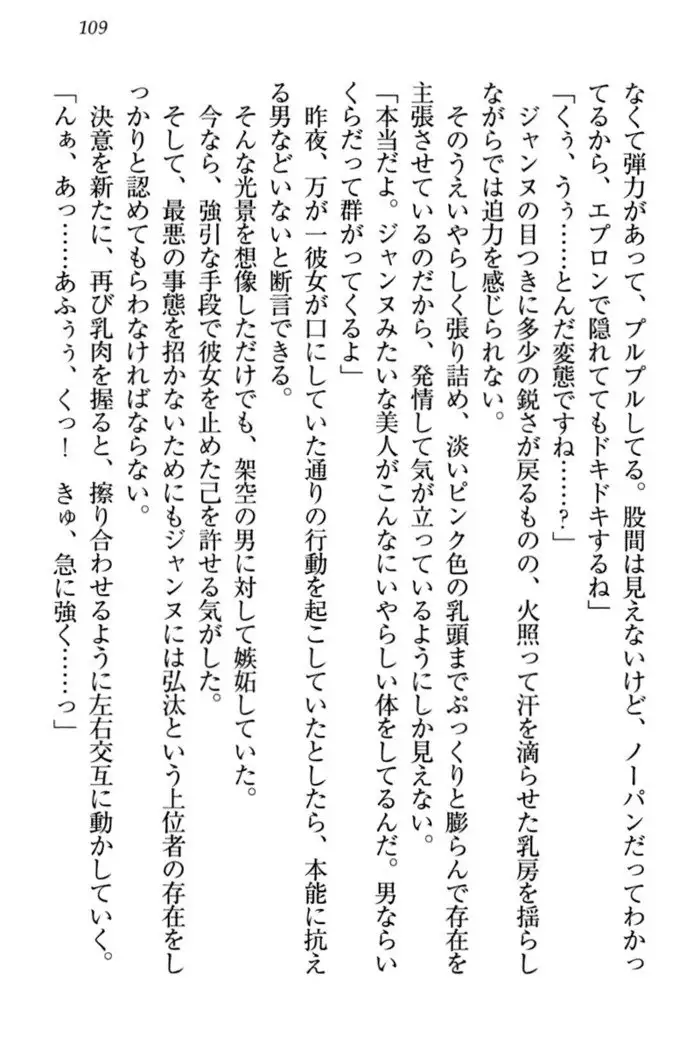 109
なくて弾力があって、プルプルしてる。股間は見えないけど、ノーパンだってわかっ
てるから、エプロンで隠れててもドキドキするね」
「くぅ、うぅ……とんだ変態ですね……？」
ジャンヌの目つきに多少の鋭さが戻るものの、火照って汗を滴らせた乳房を揺らし
ながらでは迫力を感じられない。
そのうえいやらしく張り詰め、淡いピンク色の乳頭までぷっくりと膨らんで存在を
主張させているのだから、発情して気が立っているようにしか見えない。
「本当だよ。ジャンヌみたいな美人がこんなにいやらしい体をしてるんだ。男ならい
くらだって群がってくるよ」
昨夜、万が一彼女が口にしていた通りの行動を起こしていたとしたら、本能に抗え
る男などいないと断言できる。
そんな光景を想像しただけでも、架空の男に対して嫉妬していた。
今なら、強引な手段で彼女を止めた己を許せる気がした。
そして、最悪の事態を招かないためにもジャンヌには弘汰という上位者の存在をし
っかりと認めてもらわなければならない。
決意を新たに、再び乳肉を握ると、擦り合わせるように左右交互に動かしていく。
「んぁ、あっ……あふぅぅ、くっ！　きゅ、急に強く……っ」